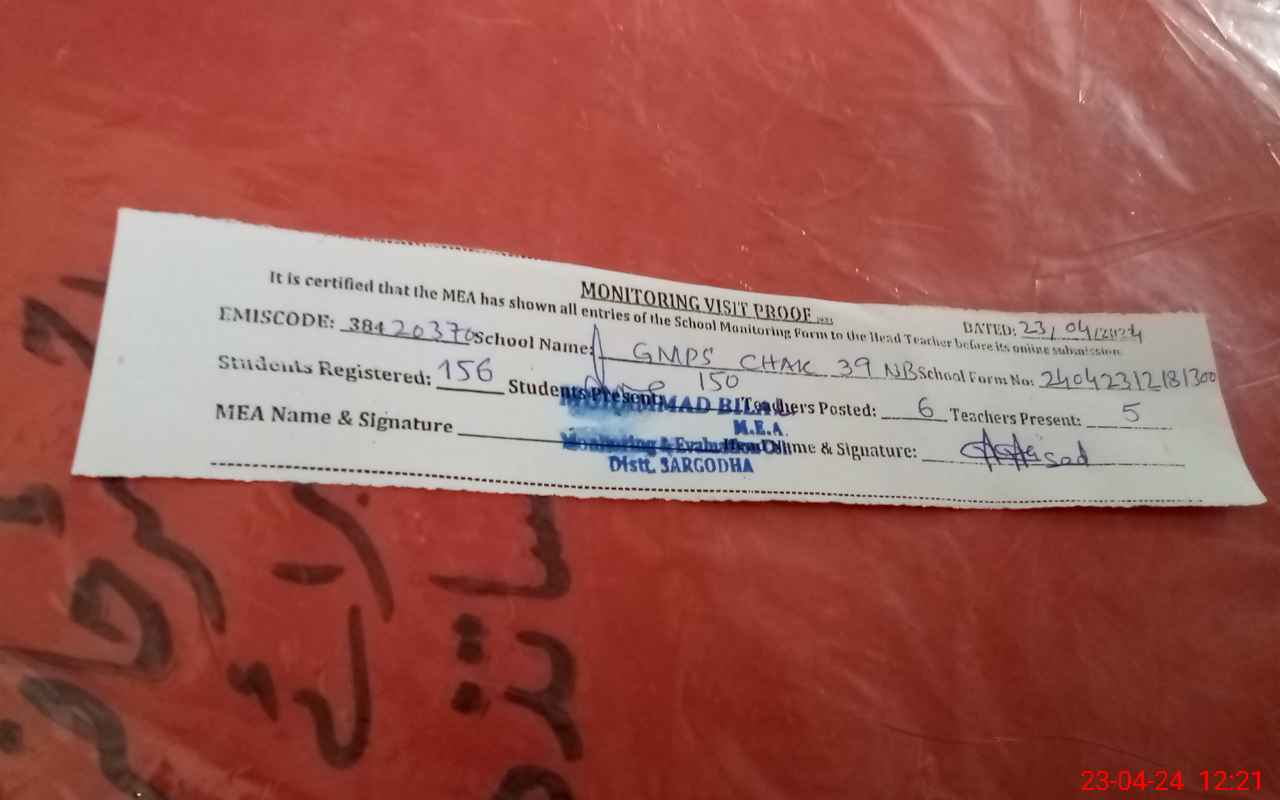 MONITORING VISIT PROOF
DATED: 23/04/2024
It is certified that the MEA has shown all entries of the School Monitoring Form to the Head Teacher before its online submission.
EMISCODE: 38420370 School Name: GMPS CHAK 39 NB School Form No: 24042312181300
Students Registered: 156 Students Present: 150 Teachers Posted: 6 Teachers Present: 5
MEA Name & Signature Name & Signature:
MUHAMMAD BILAL
M.E.A.
Monitoring & Evaluation
Distt. SARGODHA
23-04-24 12:21